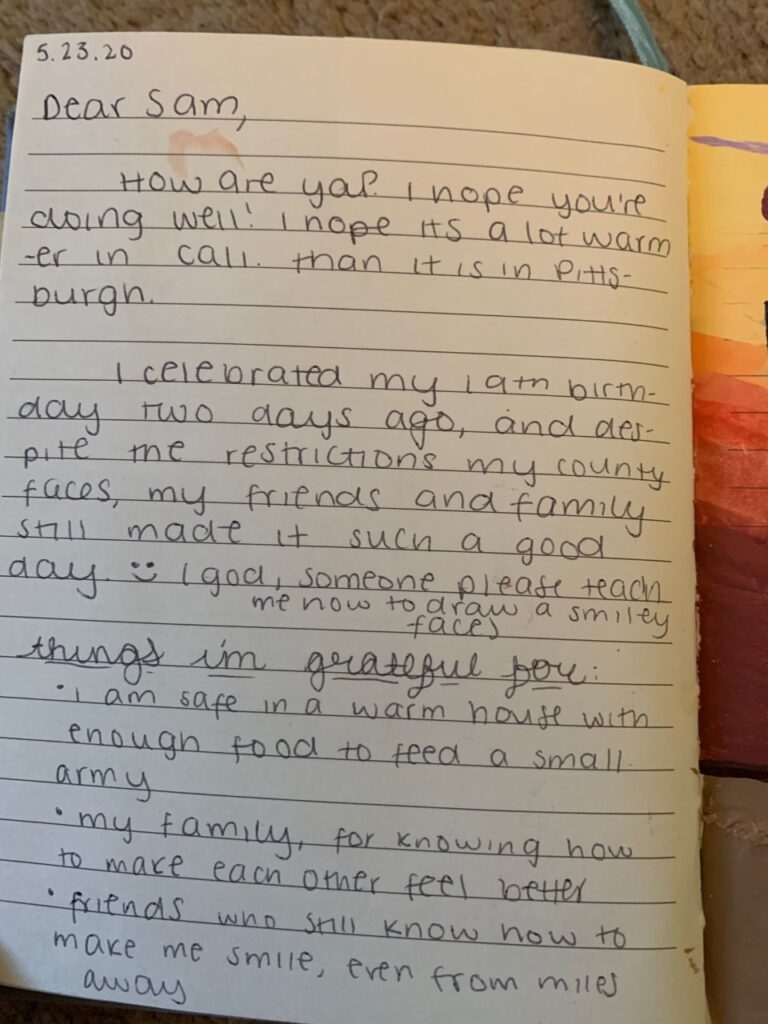 5.23.20
Dear Sam,
How are ya? I hope you're
doing well! I hope its a lot warm
-er in cali. than it is in Pitts-
burgh.
I celebrated my 19th birth-
day two days ago, and des-
pite the restrictions my county
faces, my friends and family
still made it such a good
day. :) (god, someone please teach
me how to draw a smiley
faces)
things im grateful for:
• i am safe in a warm house with
enough food to feed a small
army
• my family, for knowing how
to make each other feel better
• friends who still know how to
make me smile, even from miles
away